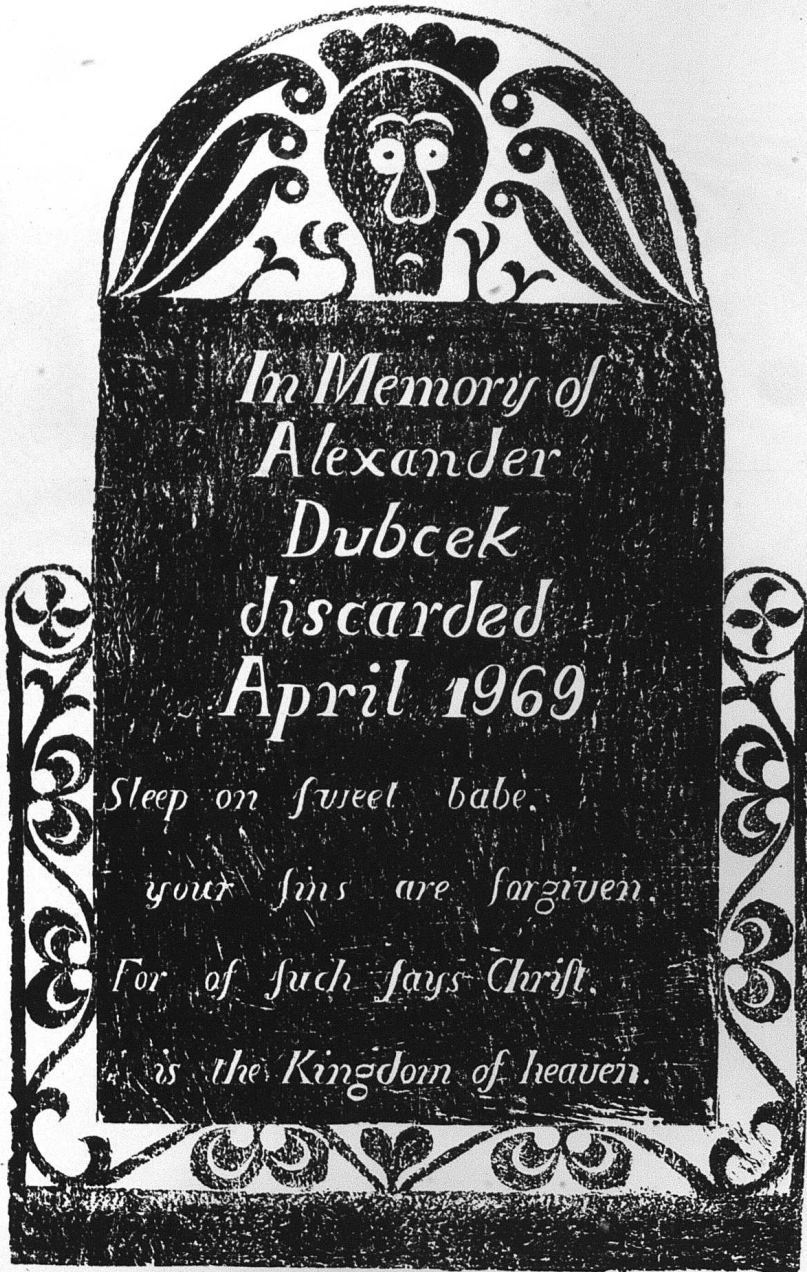 In Memory of
Alexander
Dubcek
discarded
April 1969
Sleep on ſweet babe.
your ſins are forgiven.
For of ſuch ſays Chriſt.
is the Kingdom of heaven.